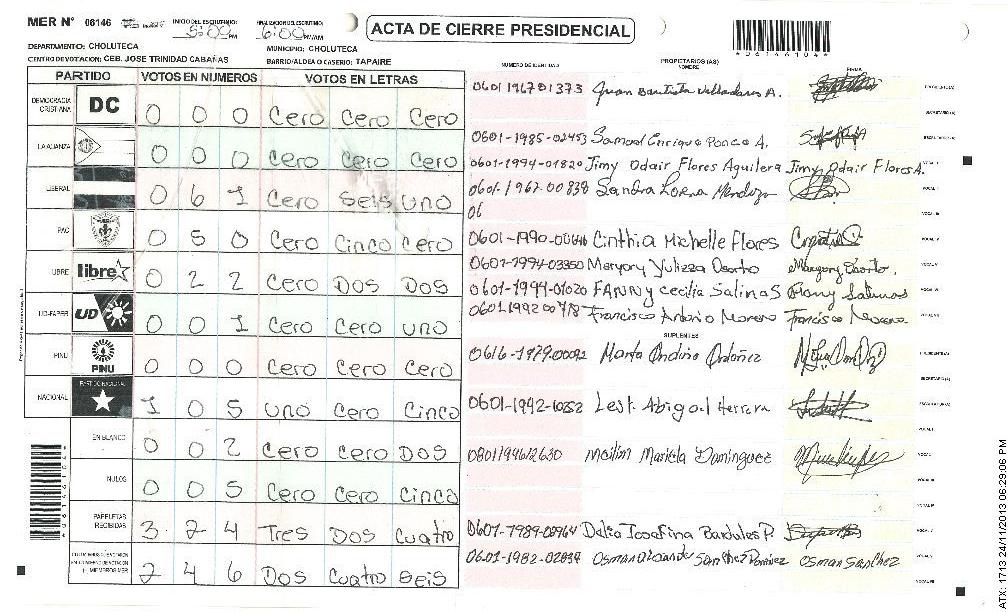 MER N° 06146 INICIO DEL ESCRUTINIO: 5:00 PM FINALIZACION DEL ESCRUTINIO: 6:00 PM/AM ACTA DE CIERRE PRESIDENCIAL *06146104*
DEPARTAMENTO: CHOLUTECA MUNICIPIO: CHOLUTECA
CENTRO DE VOTACION: CEB. JOSE TRINIDAD CABAÑAS BARRIO/ALDEA O CASERIO: TAPAIRE
PARTIDO VOTOS EN NUMEROS VOTOS EN LETRAS
NUMERO DE IDENTIDAD PROPIETARIOS (AS) NOMBRE FIRMA
DEMOCRACIA CRISTIANA DC 0 0 0 Cero Cero Cero
LA ALIANZA 0 0 0 Cero Cero Cero
LIBERAL 0 6 1 Cero Seis uno
PAC 0 5 0 Cero Cinco Cero
LIBRE libre 0 2 2 Cero Dos Dos
UD-FAPER UD 0 0 1 Cero Cero uno
PINU PINU 0 0 0 Cero Cero Cero
NACIONAL PARTIDO NACIONAL 1 0 5 uno Cero Cinco
EN BLANCO 0 0 2 Cero Cero Dos
NULOS 0 0 5 Cero Cero Cinco
PAPELETAS RECIBIDAS 3 2 4 Tres Dos Cuatro
2 4 6 Dos Cuatro Seis
0601 1967 01373 Juan Bautista Valladares A.
0601-1985-02453 Samuel Enrique Ponce A.
0601-1994-01820 Jimy Odair Flores Aguilera Jimy Odair Flores A.
0601-1967-00838 Sandra Lorena Mendoza
06
0601-1990-00646 Cinthia Michelle Flores
0601-1994-03350 Maryory Yulizza Osorto Maryory Osorto.
0601-1994-01020 FANNy Cecilia Salinas Fany Salinas
0601 1992 00718 Francisco Antonio Moreno Francisco Moreno
SUPLENTES
0616-1979-00092 Marta Ondina Ordoñez
0601-1992-10252 Abigail Herrera
Maricla Dominguez
0601-1989-00964 Dalia Josefina P.
0601-1982-02834 Osman Sanchez Osman Sanchez
ATX: 1713 24/11/2013 06:29:06 PM